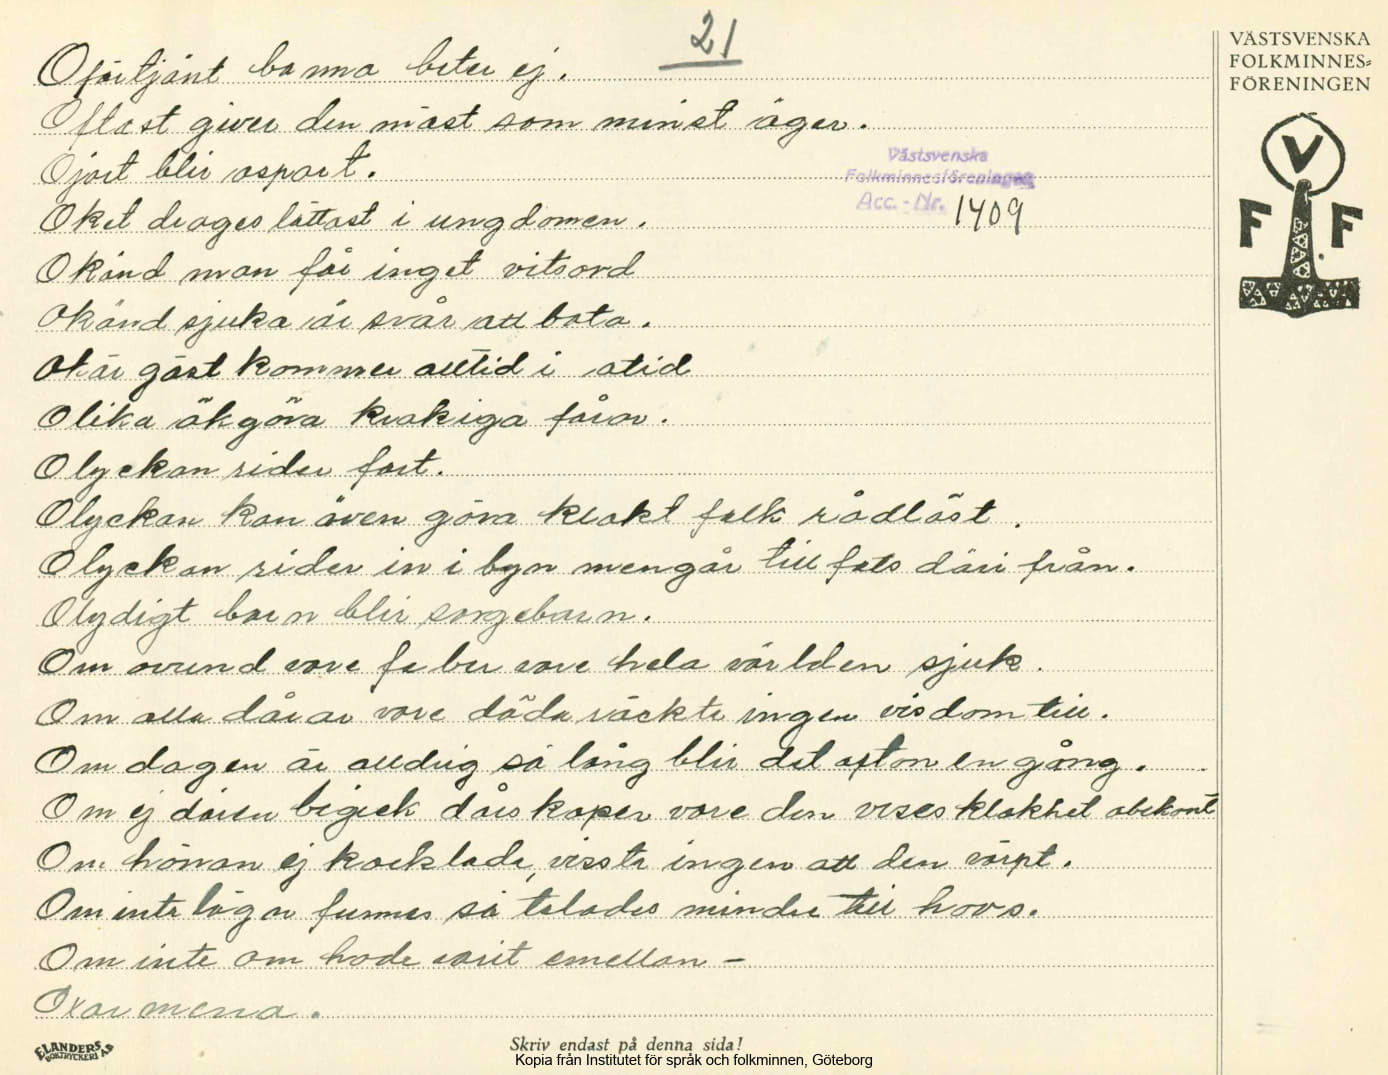 21
VÄSTSVENSKA
FOLKMINNES-
FÖRENINGEN
V
F F
Oförtjänt banna beter ej.
Oftast giver den mäst som minst äger.
Ojort blir ospart.
Oket drages lättast i ungdomen.
Västsvenska
Folkminnesföreningen
Acc.-Nr. 1409
Okänd man får inget vitsord
Okänd sjuka är svår att bota.
Okär gäst kommer alltid i otid
Olika ök göra krokiga fåror.
Olyckan rider fort.
Olyckan kan även göra klokt folk rådlöst.
Olyckan rider in i byn men går till fots däri från.
Olydigt barn blir sorgebarn.
Om avund vore feber vore hela världen sjuk.
Om alla dårar vore döda räckte ingen visdom till.
Om dagen är alldrig så lång blir det afton en gång.
Om ej dåren begick dårskaper vore den vises klokhet obekant
Om hönan ej kacklade, visste ingen att den värpt.
Om inte lögar funnes så talades mindre till hovs.
Om inte om hade varit emellan –
Oxar mena.
ELANDERS
BOKTRYCKERI AB
Skriv endast på denna sida!
Kopia från Institutet för språk och folkminnen, Göteborg